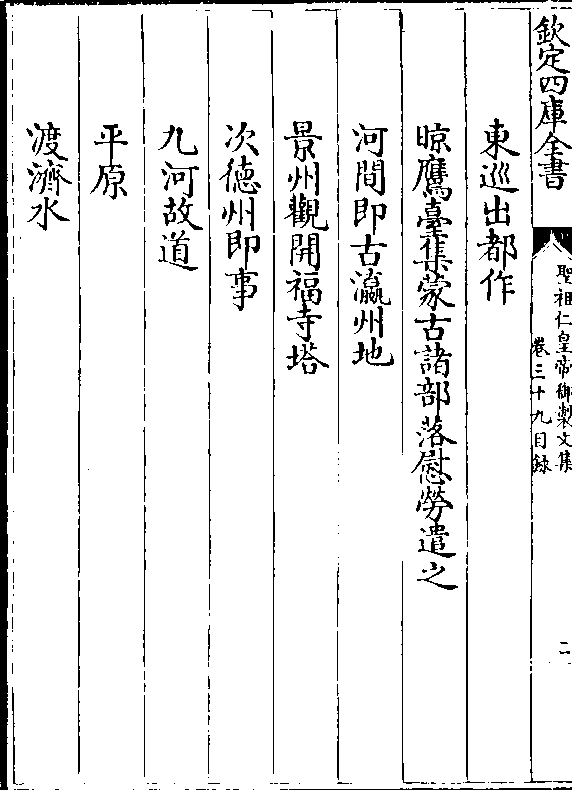 欽定四庫全書
聖祖仁皇帝御製文集
卷三十九目錄
二
東巡出都作
晾鷹臺集蒙古諸部落慰勞遣之
河間即古瀛州地
景州觀開福寺塔
次德州即事
九河故道
平原
渡濟水